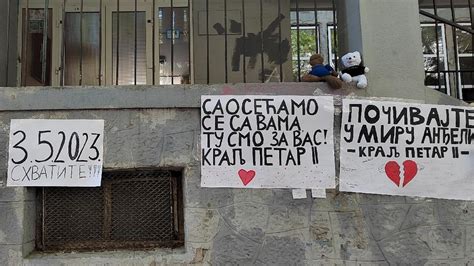 3.5.2023.
СХВАТИТЕ!!!
САОСЕЋАМО
СЕ СА ВАМА
ТУ СМО ЗА ВАС!
КРАЉ ПЕТАР II
ПОЧИВАЈТЕ
У МИРУ АНЂЕЛИ
-КРАЉ ПЕТАР II-